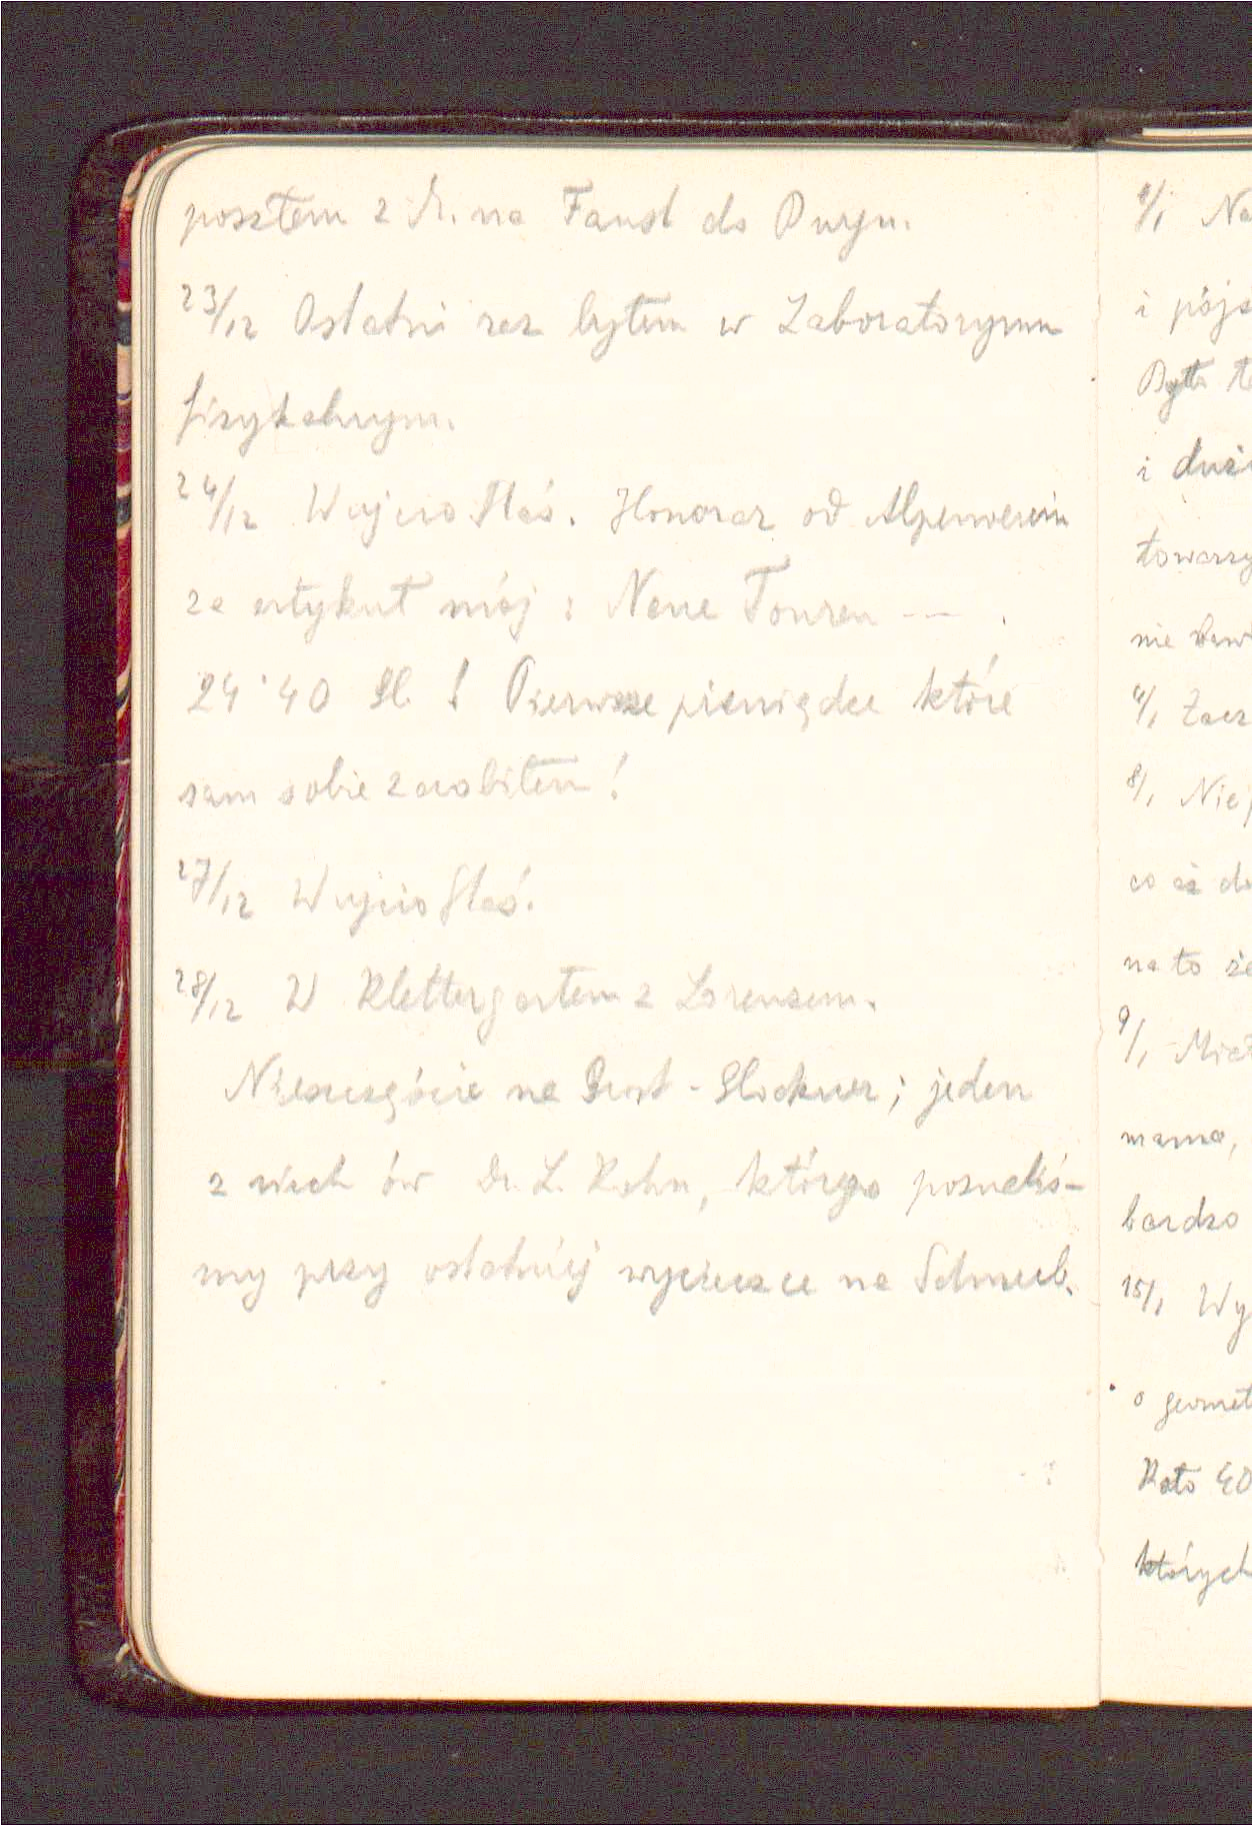 poszłem z M. na Faust do Burgu.
23/12 Ostatni raz byłem w Laboratoryum
fizykalnym.
24/12 Wujcio Staś. Honorar od Alpenverein
za artykuł mój : Neue Touren — .
24·40 Gl. ! Pierwsze pieniądze które
sam sobie zarobiłem !
27/12 Wujcio Staś.
28/12 W Klettergarten z Lorenzem.
Nieszczęście na Gross-Glockner ; jeden
z nich ów Dr. L. Kohn, którego poznaliś-
my przy ostatniej wycieczce na Schneeb.
4/1
i
i
towarzy
nie
4/1
8/1
co aż
na to że
9/1
mama,
bardzo
15/1 Wy
o geomet
Koło 40
których